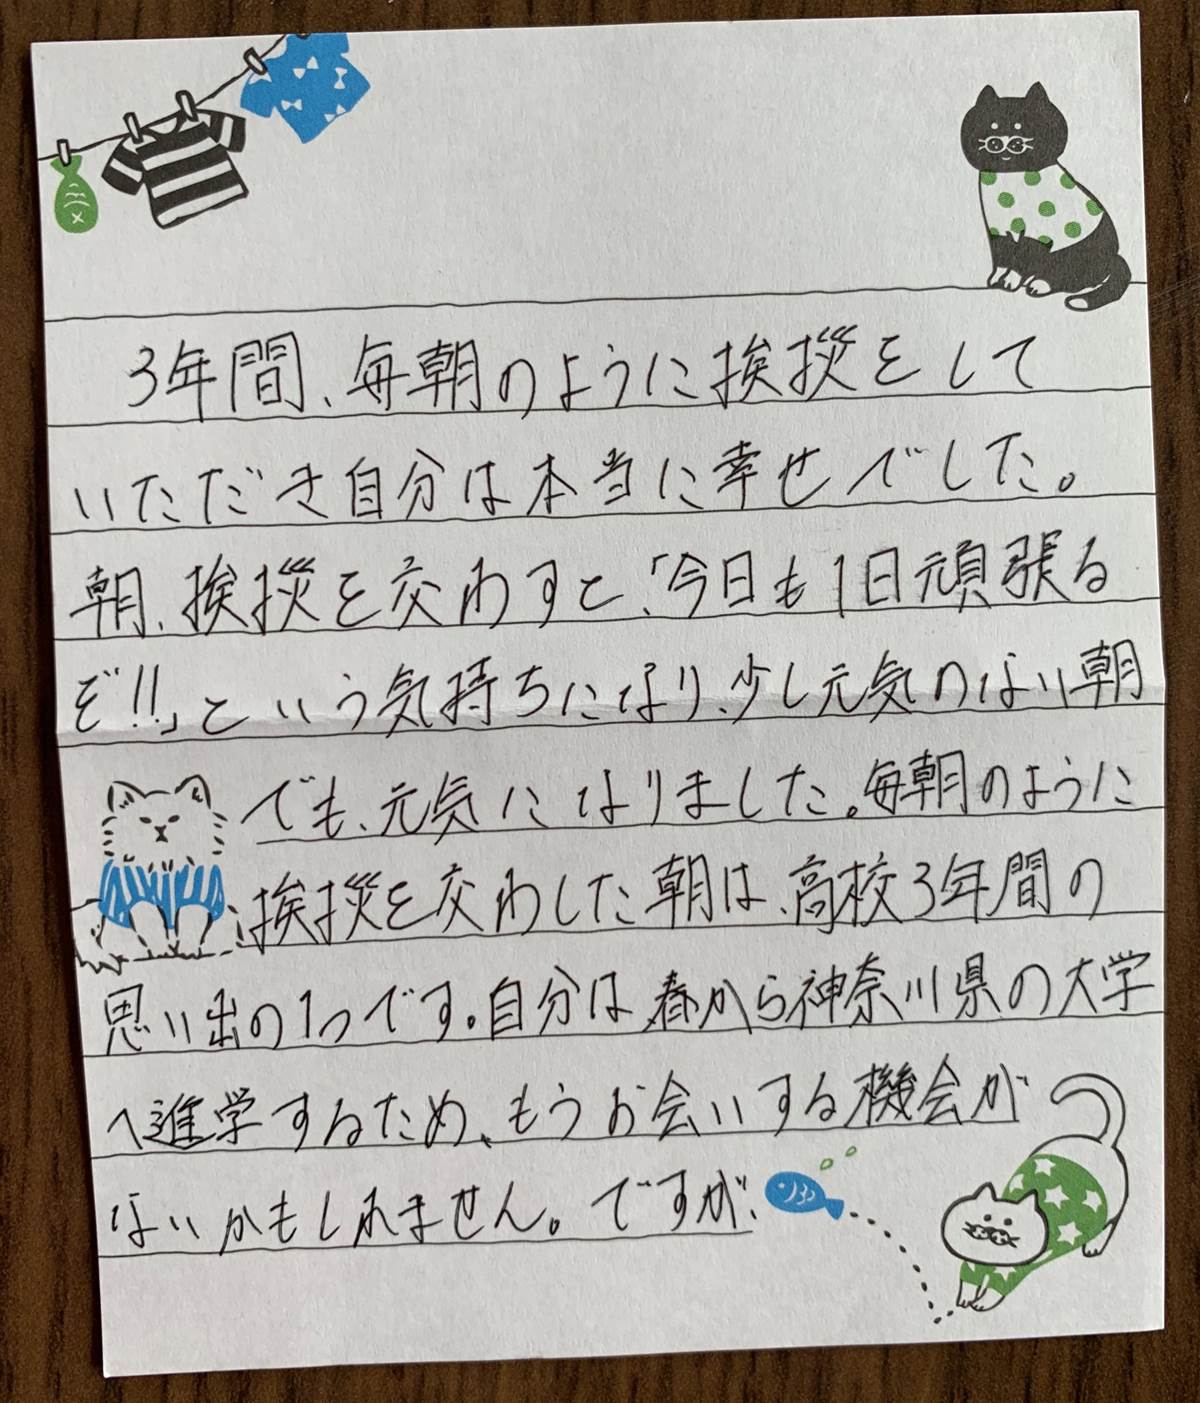 3年間、毎朝のように挨拶をして
いただき自分は本当に幸せでした。
朝、挨拶を交わすと、「今日も1日頑張る
ぞ!!」という気持ちになり、少し元気のない朝
でも、元気になりました。毎朝のように
挨拶を交わした朝は、高校3年間の
思い出の1つです。自分は、春から神奈川県の大学
へ進学するため、もうお会いする機会が
ないかもしれません。ですが、